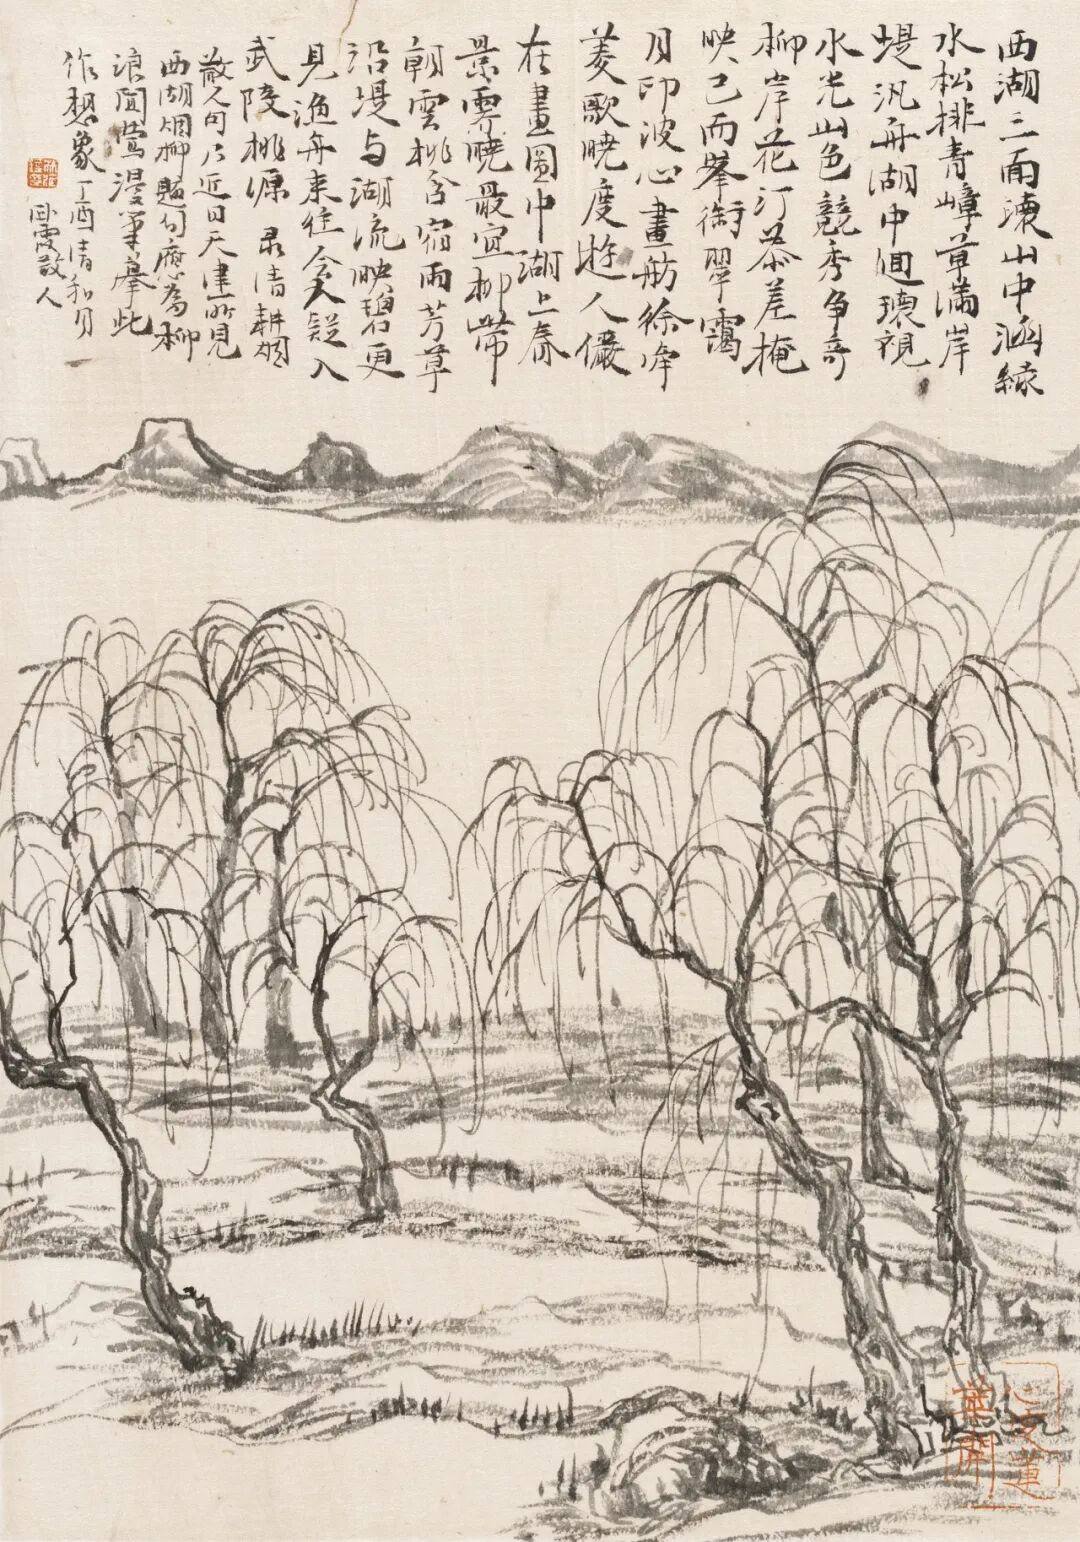 西湖三面环山中涵綠
水松排青嶂草滿岸
堤汎舟湖中迴環視
水光山色競秀爭奇
柳岸花汀參差掩
映已而峯銜翠靄
月印波心畫舫徐峰
菱歌曉度遊人儼
在畫圖中湖上春
景霽曉最宜柳帶
朝雲桃含宿雨芳草
沿堤与湖流映碧更
見漁舟來往令人疑入
武陵桃源 录清耕烟
散人句乃近日天津所見
西湖烟柳題句應為柳
浪聞莺漫筆摹此
作想象 丁酉清和月
卧霞散人